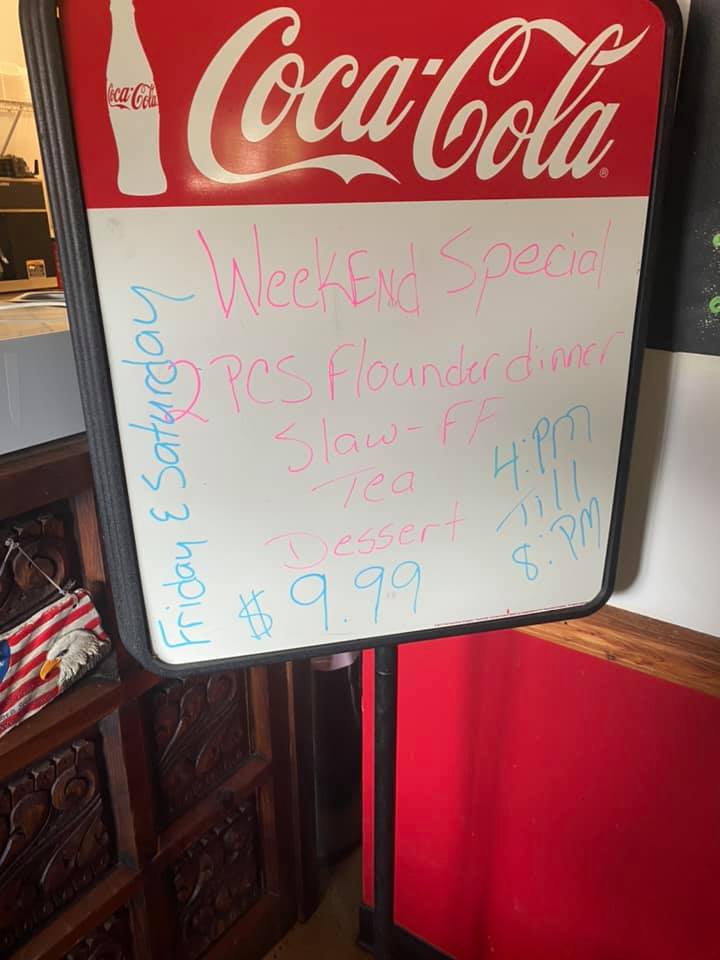 Coca-Cola
Coca-Cola
WeekEnd Special
2 PCS flounder dinner
Slaw - FF
Tea
Dessert
$9.99
4:PM
Till
8:PM
Friday & Saturday